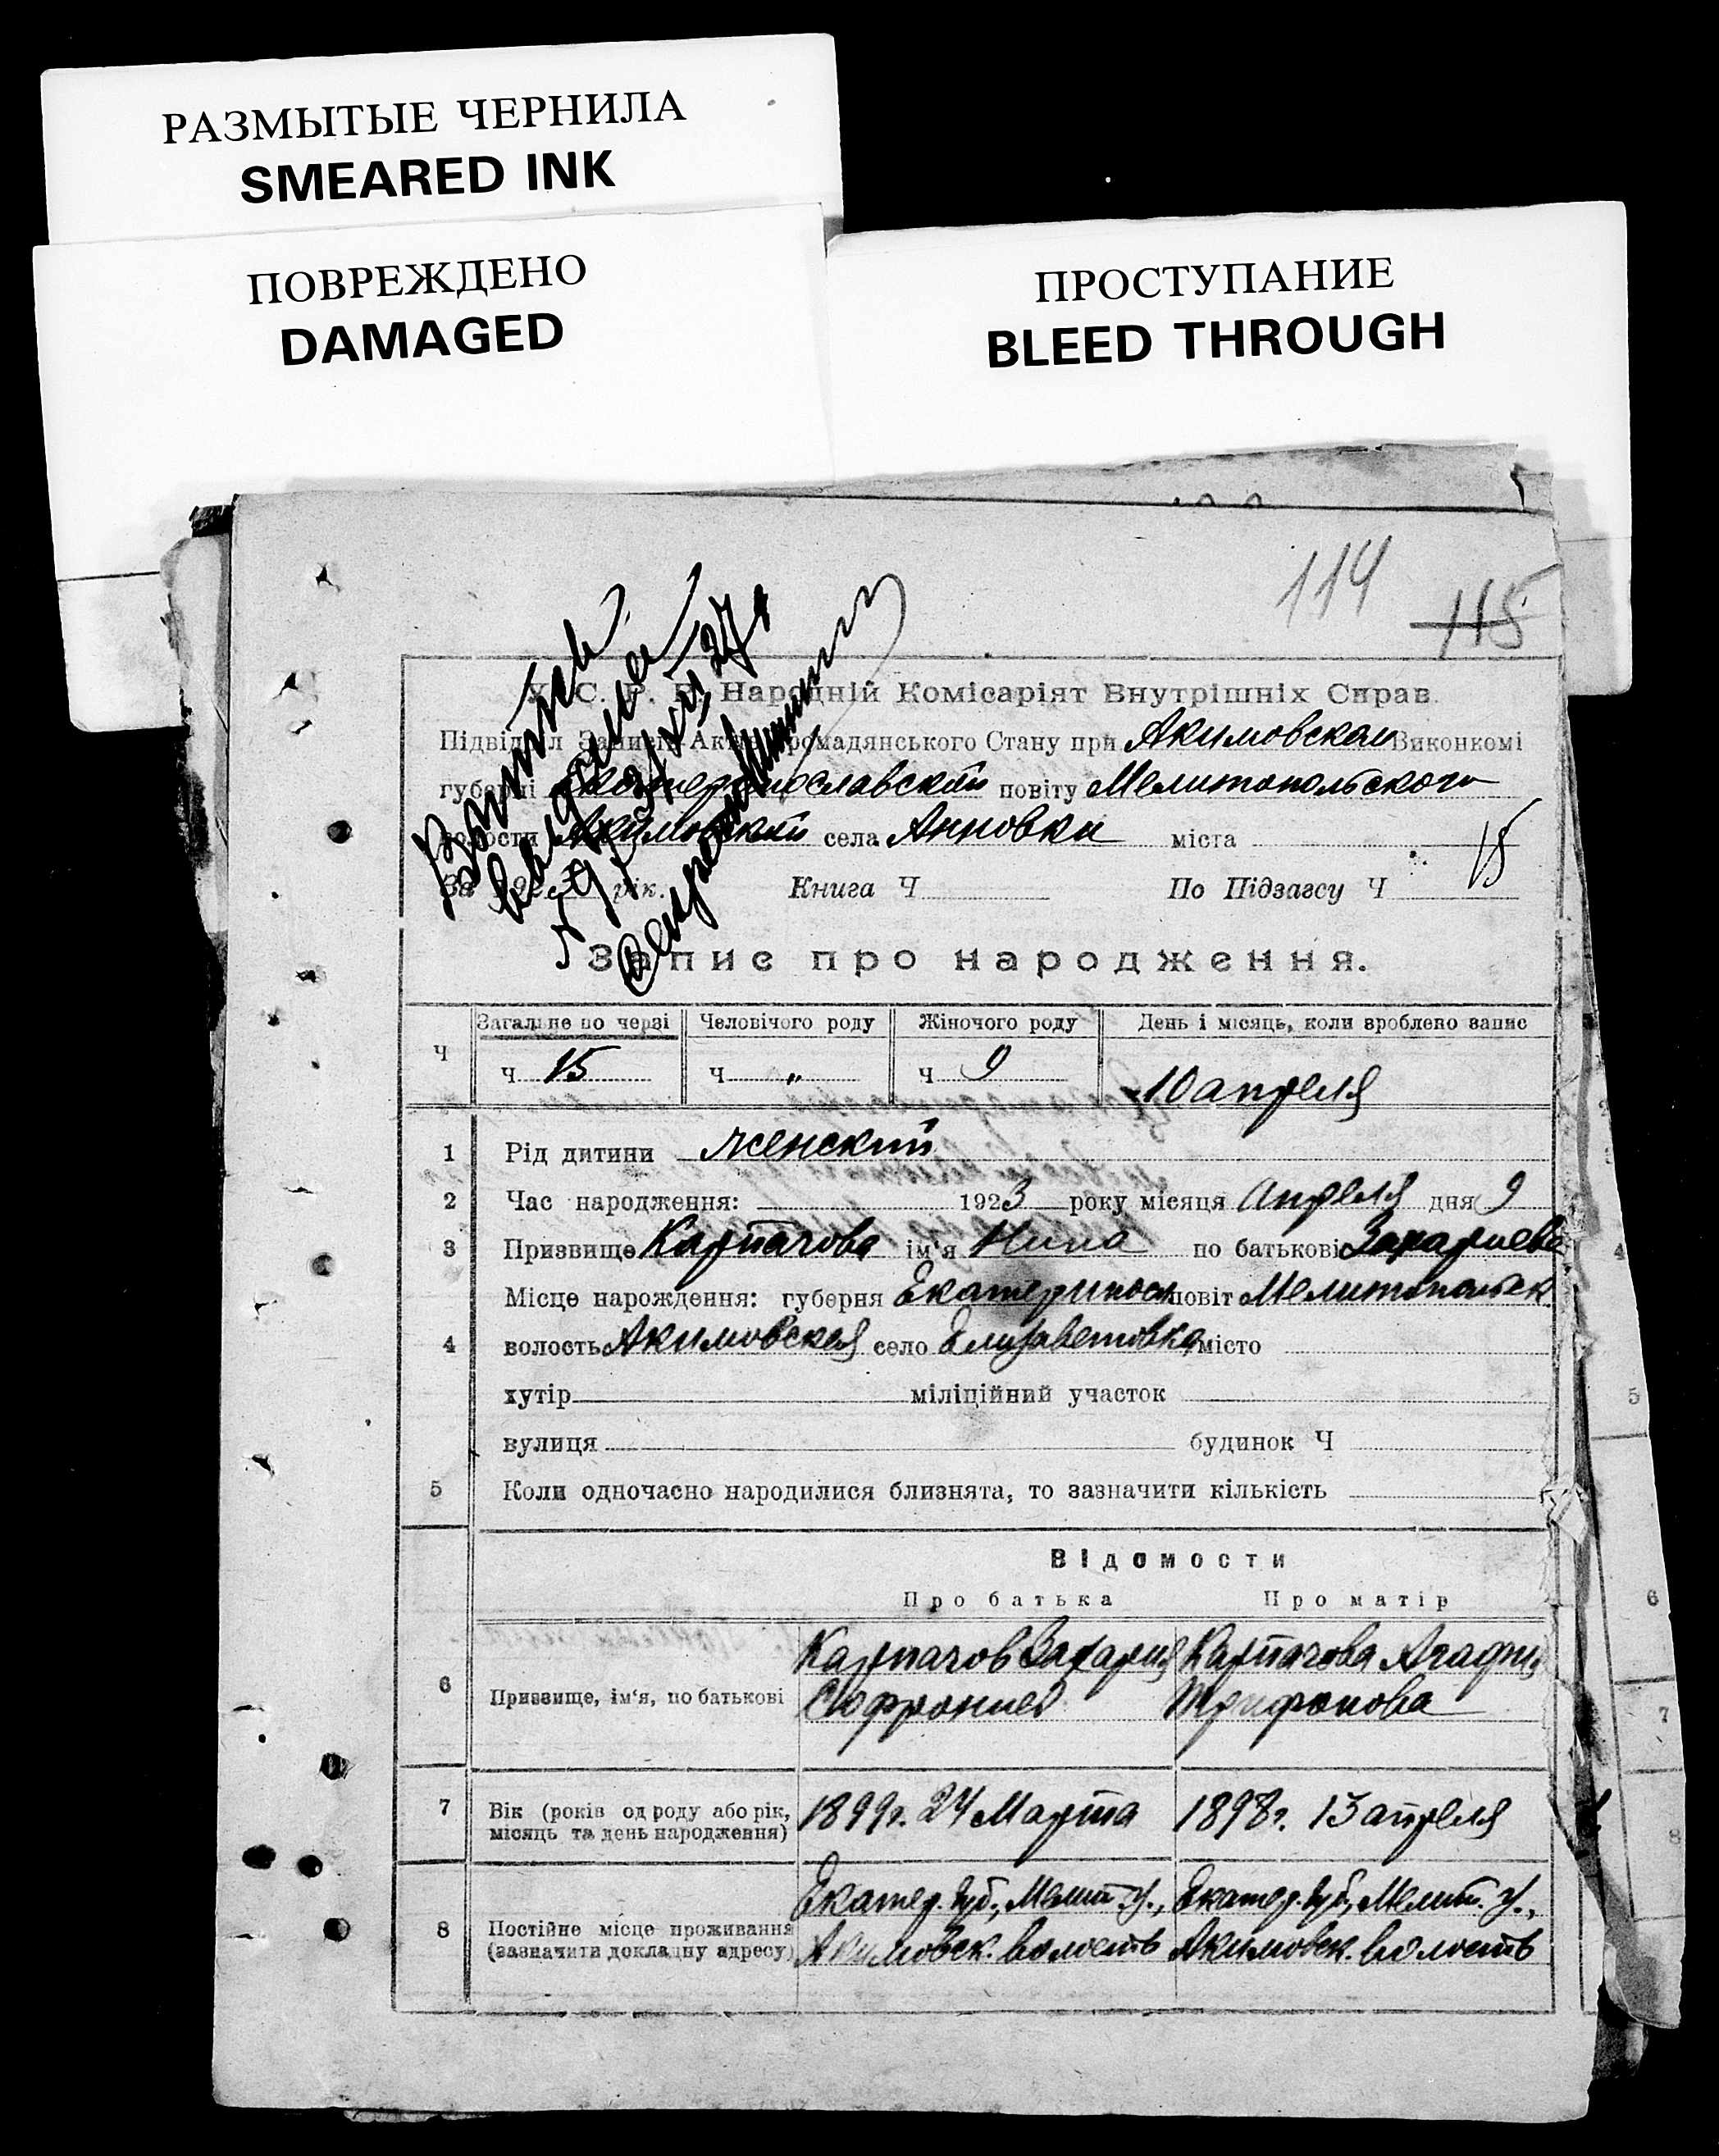 РАЗМЫТЫЕ ЧЕРНИЛА
SMEARED INK
ПОВРЕЖДЕНО
DAMAGED
ПРОСТУПАНИЕ
BLEED THROUGH
114
115
С. Р. Р. Народній Комісаріят Внутрішніх Справ.
Підвідділ Записів Актів Громадянського Стану при Акимовском Виконкомі
губерні Екатеринославской повіту Мелитопольского
волости Акимовской села Анновки міста
За 1923 рік. Книга Ч По Підзагсу Ч 15
Запис про народження.
Загальне по черзі Человічого роду Жіночого роду День і місяць, коли зроблено запис
Ч ч 15 ч „ ч 9 10 апреля
1 Рід дитини женский
2 Час народження: 1923 року місяця Апреля дня 9
3 Призвище Карпачова ім'я Нина по батькові Захариева
Місце нарождення: губерня Екатеринос повіт Мелитопольск
4 волость Акимовская село Елизаветовка місто
хутір міліційний участок
вулиця будинок Ч
5 Коли одночасно народилися близнята, то зазначити кількість
Відомости
Про батька Про матір
Карпачов Захарий Карпачова Агафия
6 Призвище, ім'я, по батькові Софрониев Трифонова
7 Вік (років од роду або рік, 1899г. 24 Марта 1898г. 13 апреля
місяць та день народження)
Екатер. губ., Мелит. у., Екатер. губ., Мелит. у.,
8 Постійне місце проживання
(зазначити докладну адресу) Акимовск. волость Акимовск. волость